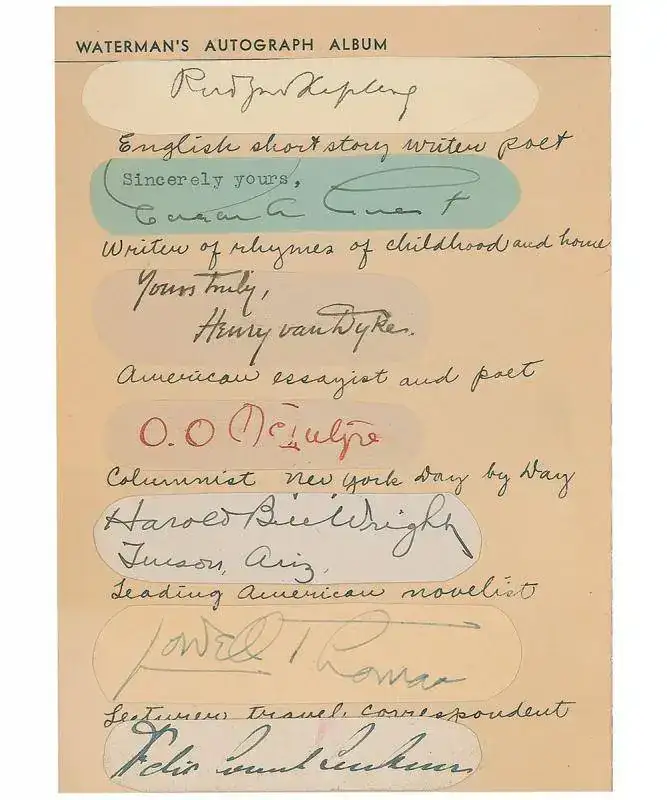 WATERMAN'S AUTOGRAPH ALBUM
Rudyard Kipling
English short story writer poet
Sincerely yours,
Edgar A Guest
Writer of rhymes of childhood and home
Yours truly,
Henry van Dyke.
American essayist and poet
O. O McIntyre
Columnist New York Day by Day
Harold Bell Wright
Tucson, Ariz.
Leading American novelist
Lowell Thomas
Lecturer, travel, correspondent
Felix